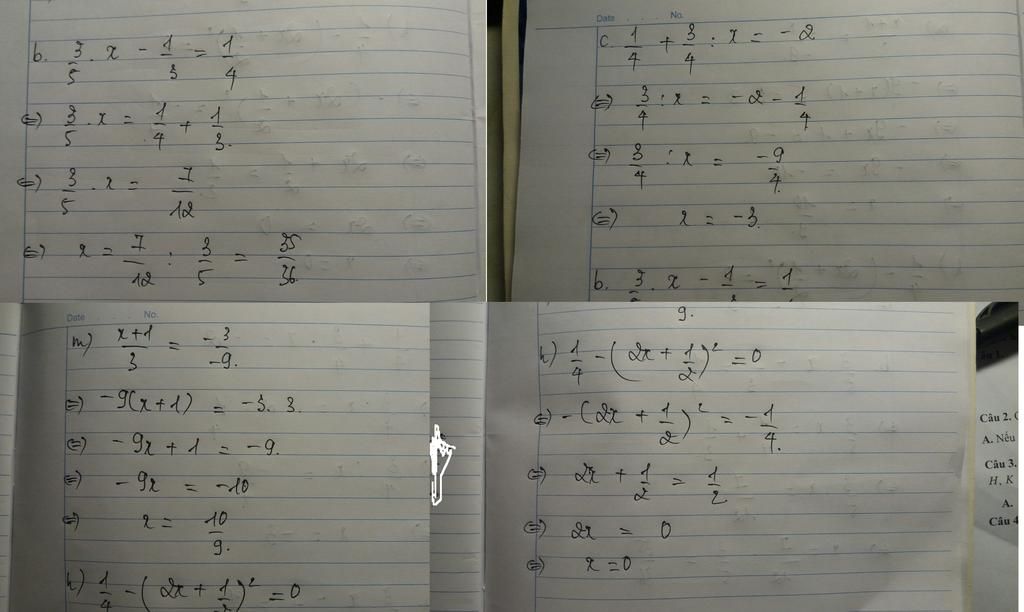 b. 3/5 . x - 1/3 = 1/4
⇔) 3/5 . x = 1/4 + 1/3.
⇔) 3/5 . x = 7/12
⇔) x = 7/12 : 3/5 = 35/36.
Date No.
c. 1/4 + 3/4 : x = -2
⇔) 3/4 : x = -2 - 1/4
⇔) 3/4 : x = -9/4.
⇔) x = -3.
b. 3/5 . x - 1/3 = 1/4
Date No.
m) x+1/3 = -3/-9.
⇔) -9(x+1) = -3. 3.
⇔) -9x + 1 = -9.
⇔) -9x = -10
⇔) x = 10/9.
h) 1/4 - (2x + 1/2)² = 0
9.
h) 1/4 - (2x + 1/2)² = 0
⇔) -(2x + 1/2)² = -1/4.
⇔) 2x + 1/2 = 1/2
⇔) 2x = 0
⇔) x = 0
Câu 2.
A. Nếu
Câu 3.
H, K
A.
Câu 4